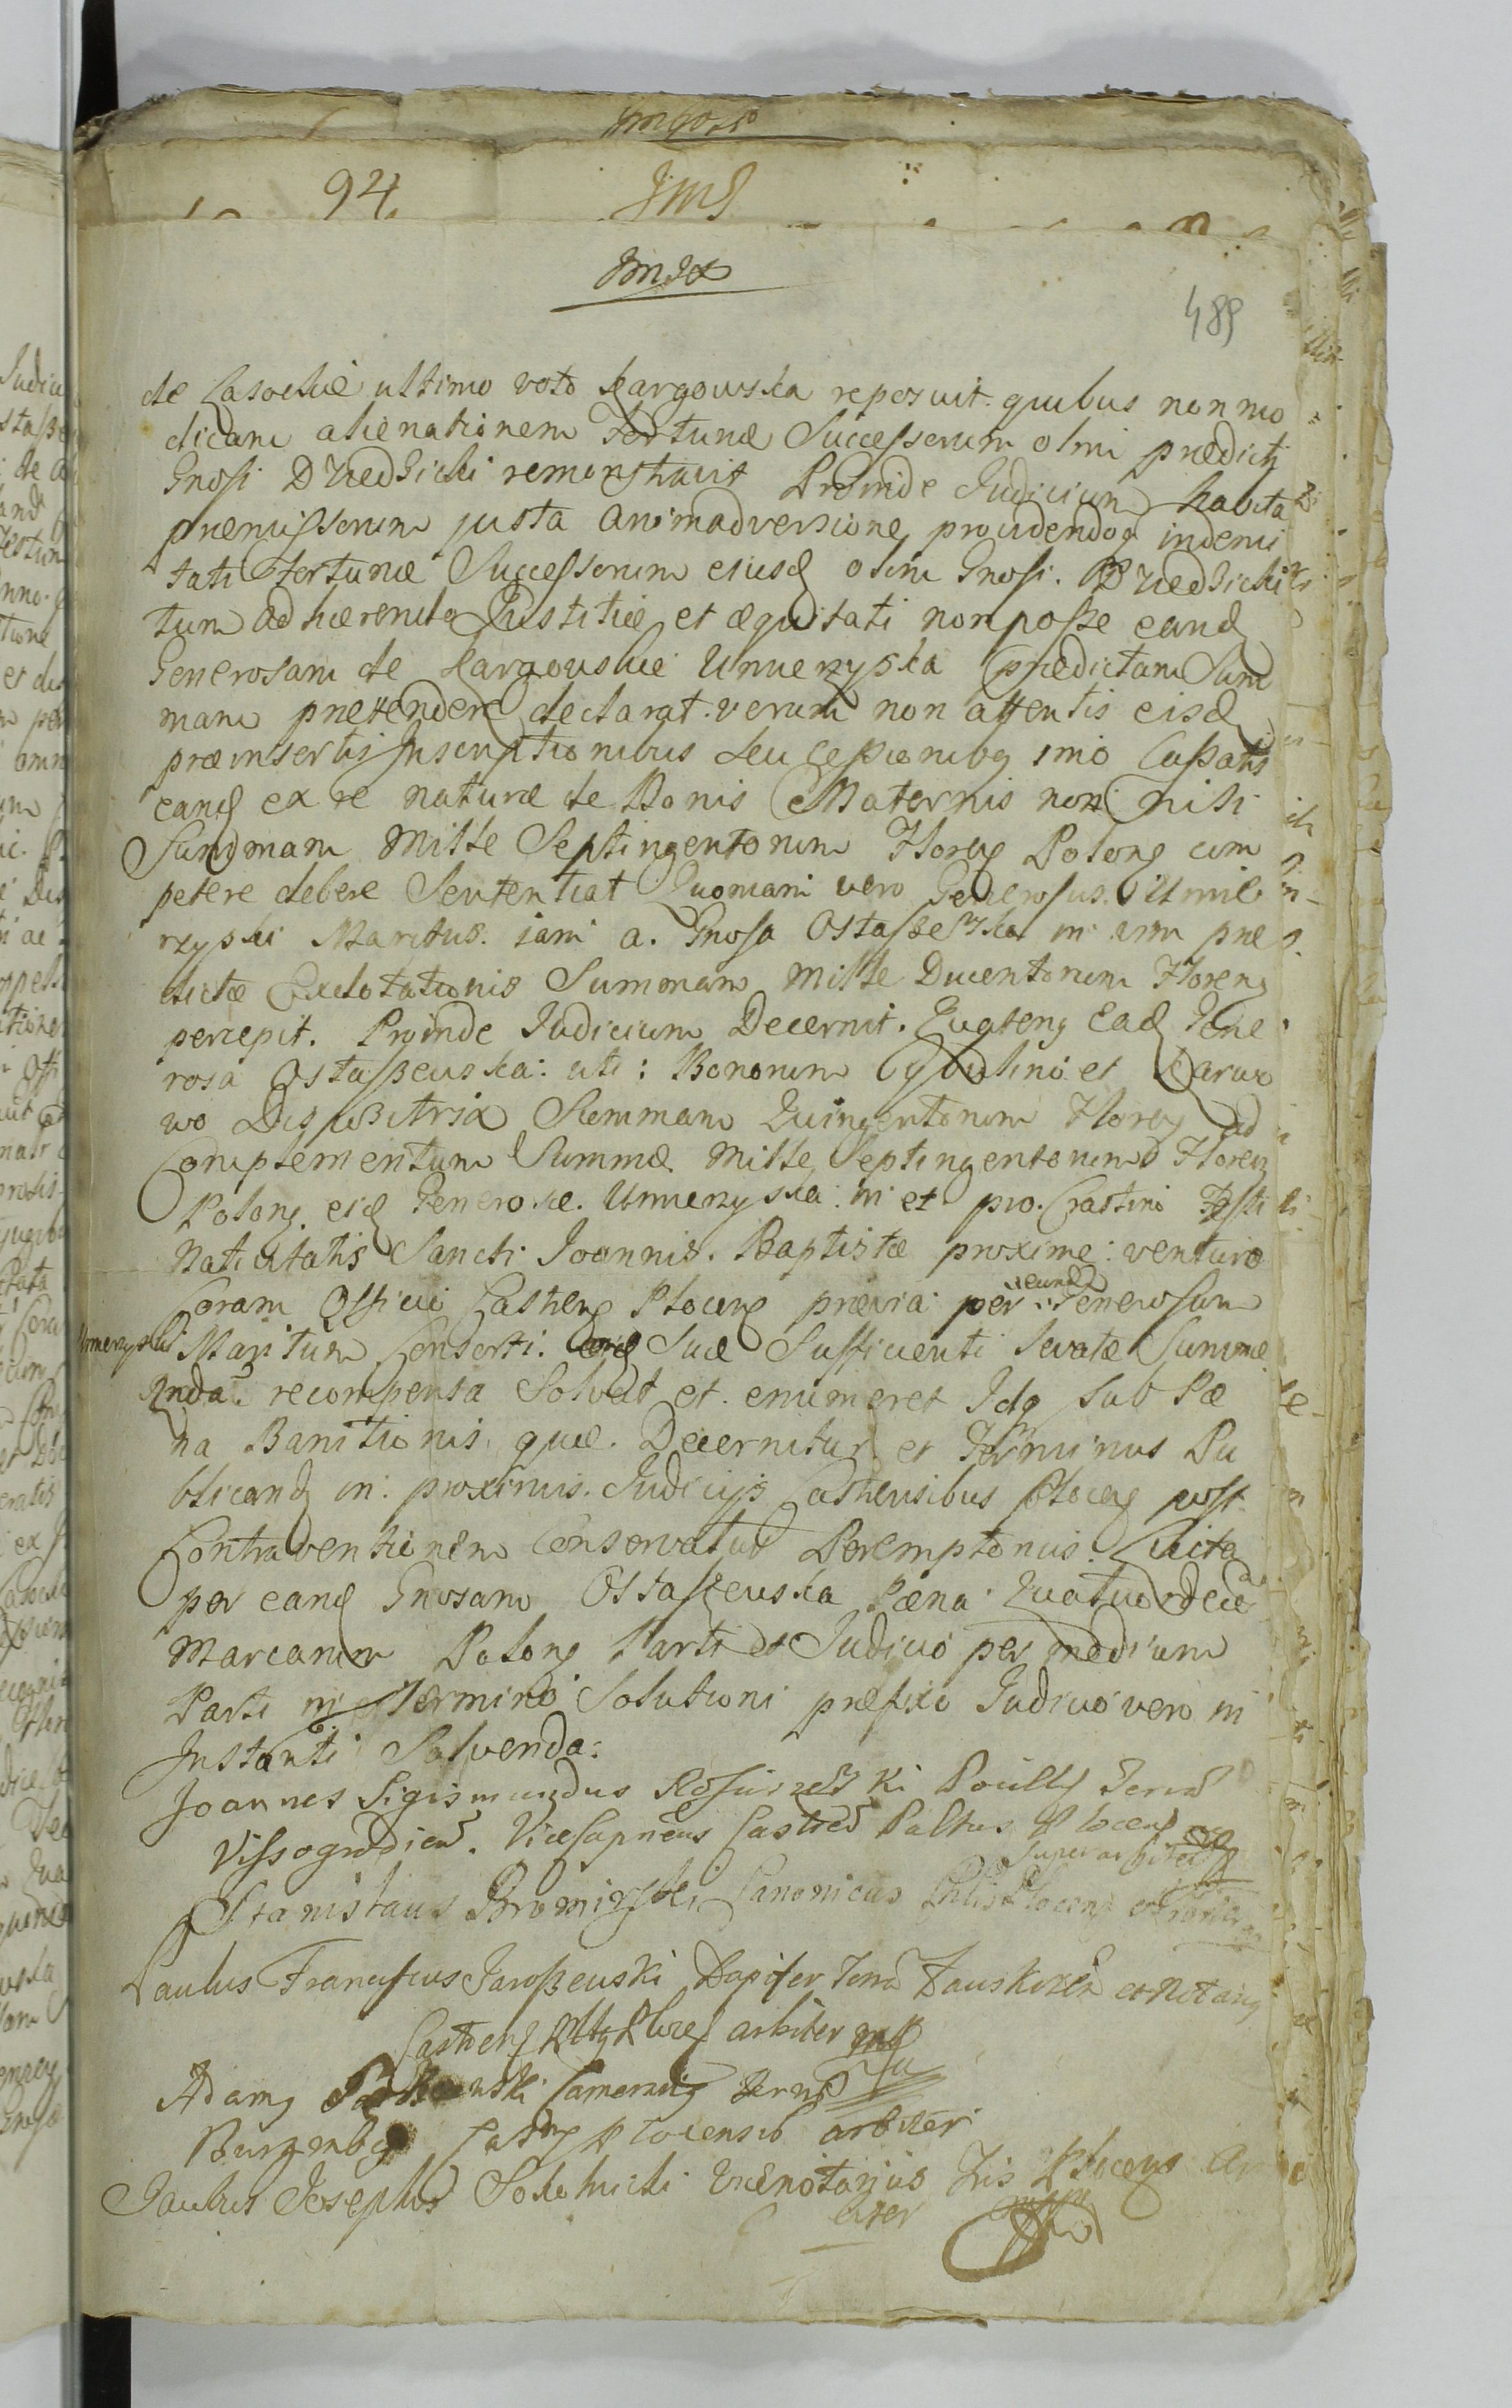 94.
489
de Lasockie ultimo voto Kargowska reposuit. quibus non mo
dicam alienationem Fortunæ Successorum olim prædicti
Gnosi Drzedzicki remonstravit Proinde Judicium habita
præmissorum justa animadversione, providendoq indemi
tati Fortunæ Successorum eiusd olim Gnosi. Drzedzicki
tum adhærendo Justitiæ et æquitati non posse eand
Generosam de Kargowskie Umienzyska prædictam Sum
mam prætendere declarat. verum non attentis eisd
præinsertis Inscriptionibus seu imo Cassatis
eand ex re naturæ de Bonis Maternis non nisi
Summam Mille Septingentorum Floreg Polong com
petere debere Sententiat Quoniam vero Generosus Umie
rzyski Maritus. iam a. Gnosa Ostaszewska in vim præ
dictæ Exdotationis Summam Mille Ducentorum Floreng
percepit. Proinde Judicium Decernit. Quateng Ead Gene
rosa Ostaszewska: uti: Bonorum Cybulino et Karwo
wo Dispositrix Summam Quingentorum Floreg ad
Complementum Summæ Mille Septingentorum Floreg
Polong. eid Generosæ. Umienzyska in et pro. Crastino Festi
Nativitatis Sancti Joannis. Baptistæ proxime: venturo
Coram Officio Castreng Ploceng prævia per eund Generosum
Umienzyski Maritum Consorti. Suæ Sufficienti levatæ Summæ
recompensa Solvat et. enumeret Idq sub Pæ
na Banitionis, quæ. Decernitur et Terminus Pu
blicand in: proximis. Judicijs Castrensibus Ploceg post.
Contraventionem Conservatur Peremptorius. Luita
per eand Gnosam Ostaszewska Pæna Quatuordecem
Marcarum Polong Parti et Judicio per medium
Parti in Termino Solutioni præfixo Judicio vero in
Instanti Solvenda:
Joannes Sigismundus Pocill Terræ
Vissogrodien. Vicesapneus Castren Paltus Plocens
Superarbiter
Stanislaus Bromirski Canonicus Plocens
Paulus Franciscus Jaroszewski Dapifer Terræ Zauskrzen et Notarig
Castreng Ploceg arbiter mp
Adamg Camerarig Terræ
Burgrabg Castrg Plocensis arbiter
Paulus Josephus Vicenotarius Plocens Ar
biter mppa